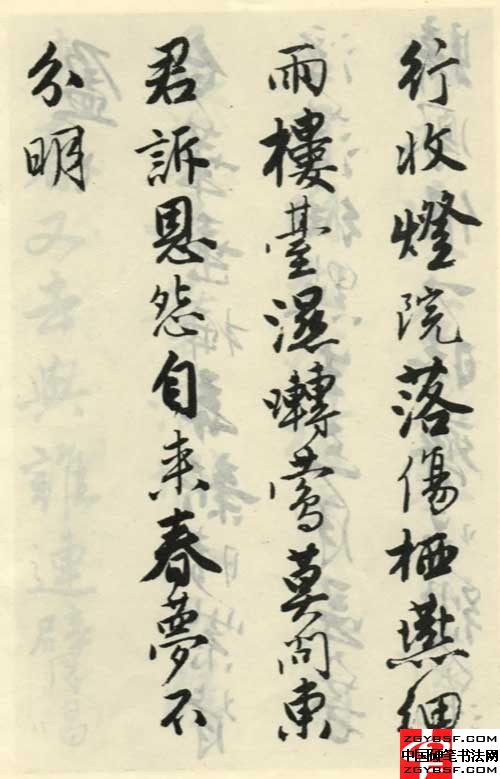 行收燈院落傷栖燕細
雨樓臺濕囀鶯莫問東
君訴恩怨自来春夢不
分明
ZGYBSF.COM
中国硬笔书法网
ZGYBSF.COM